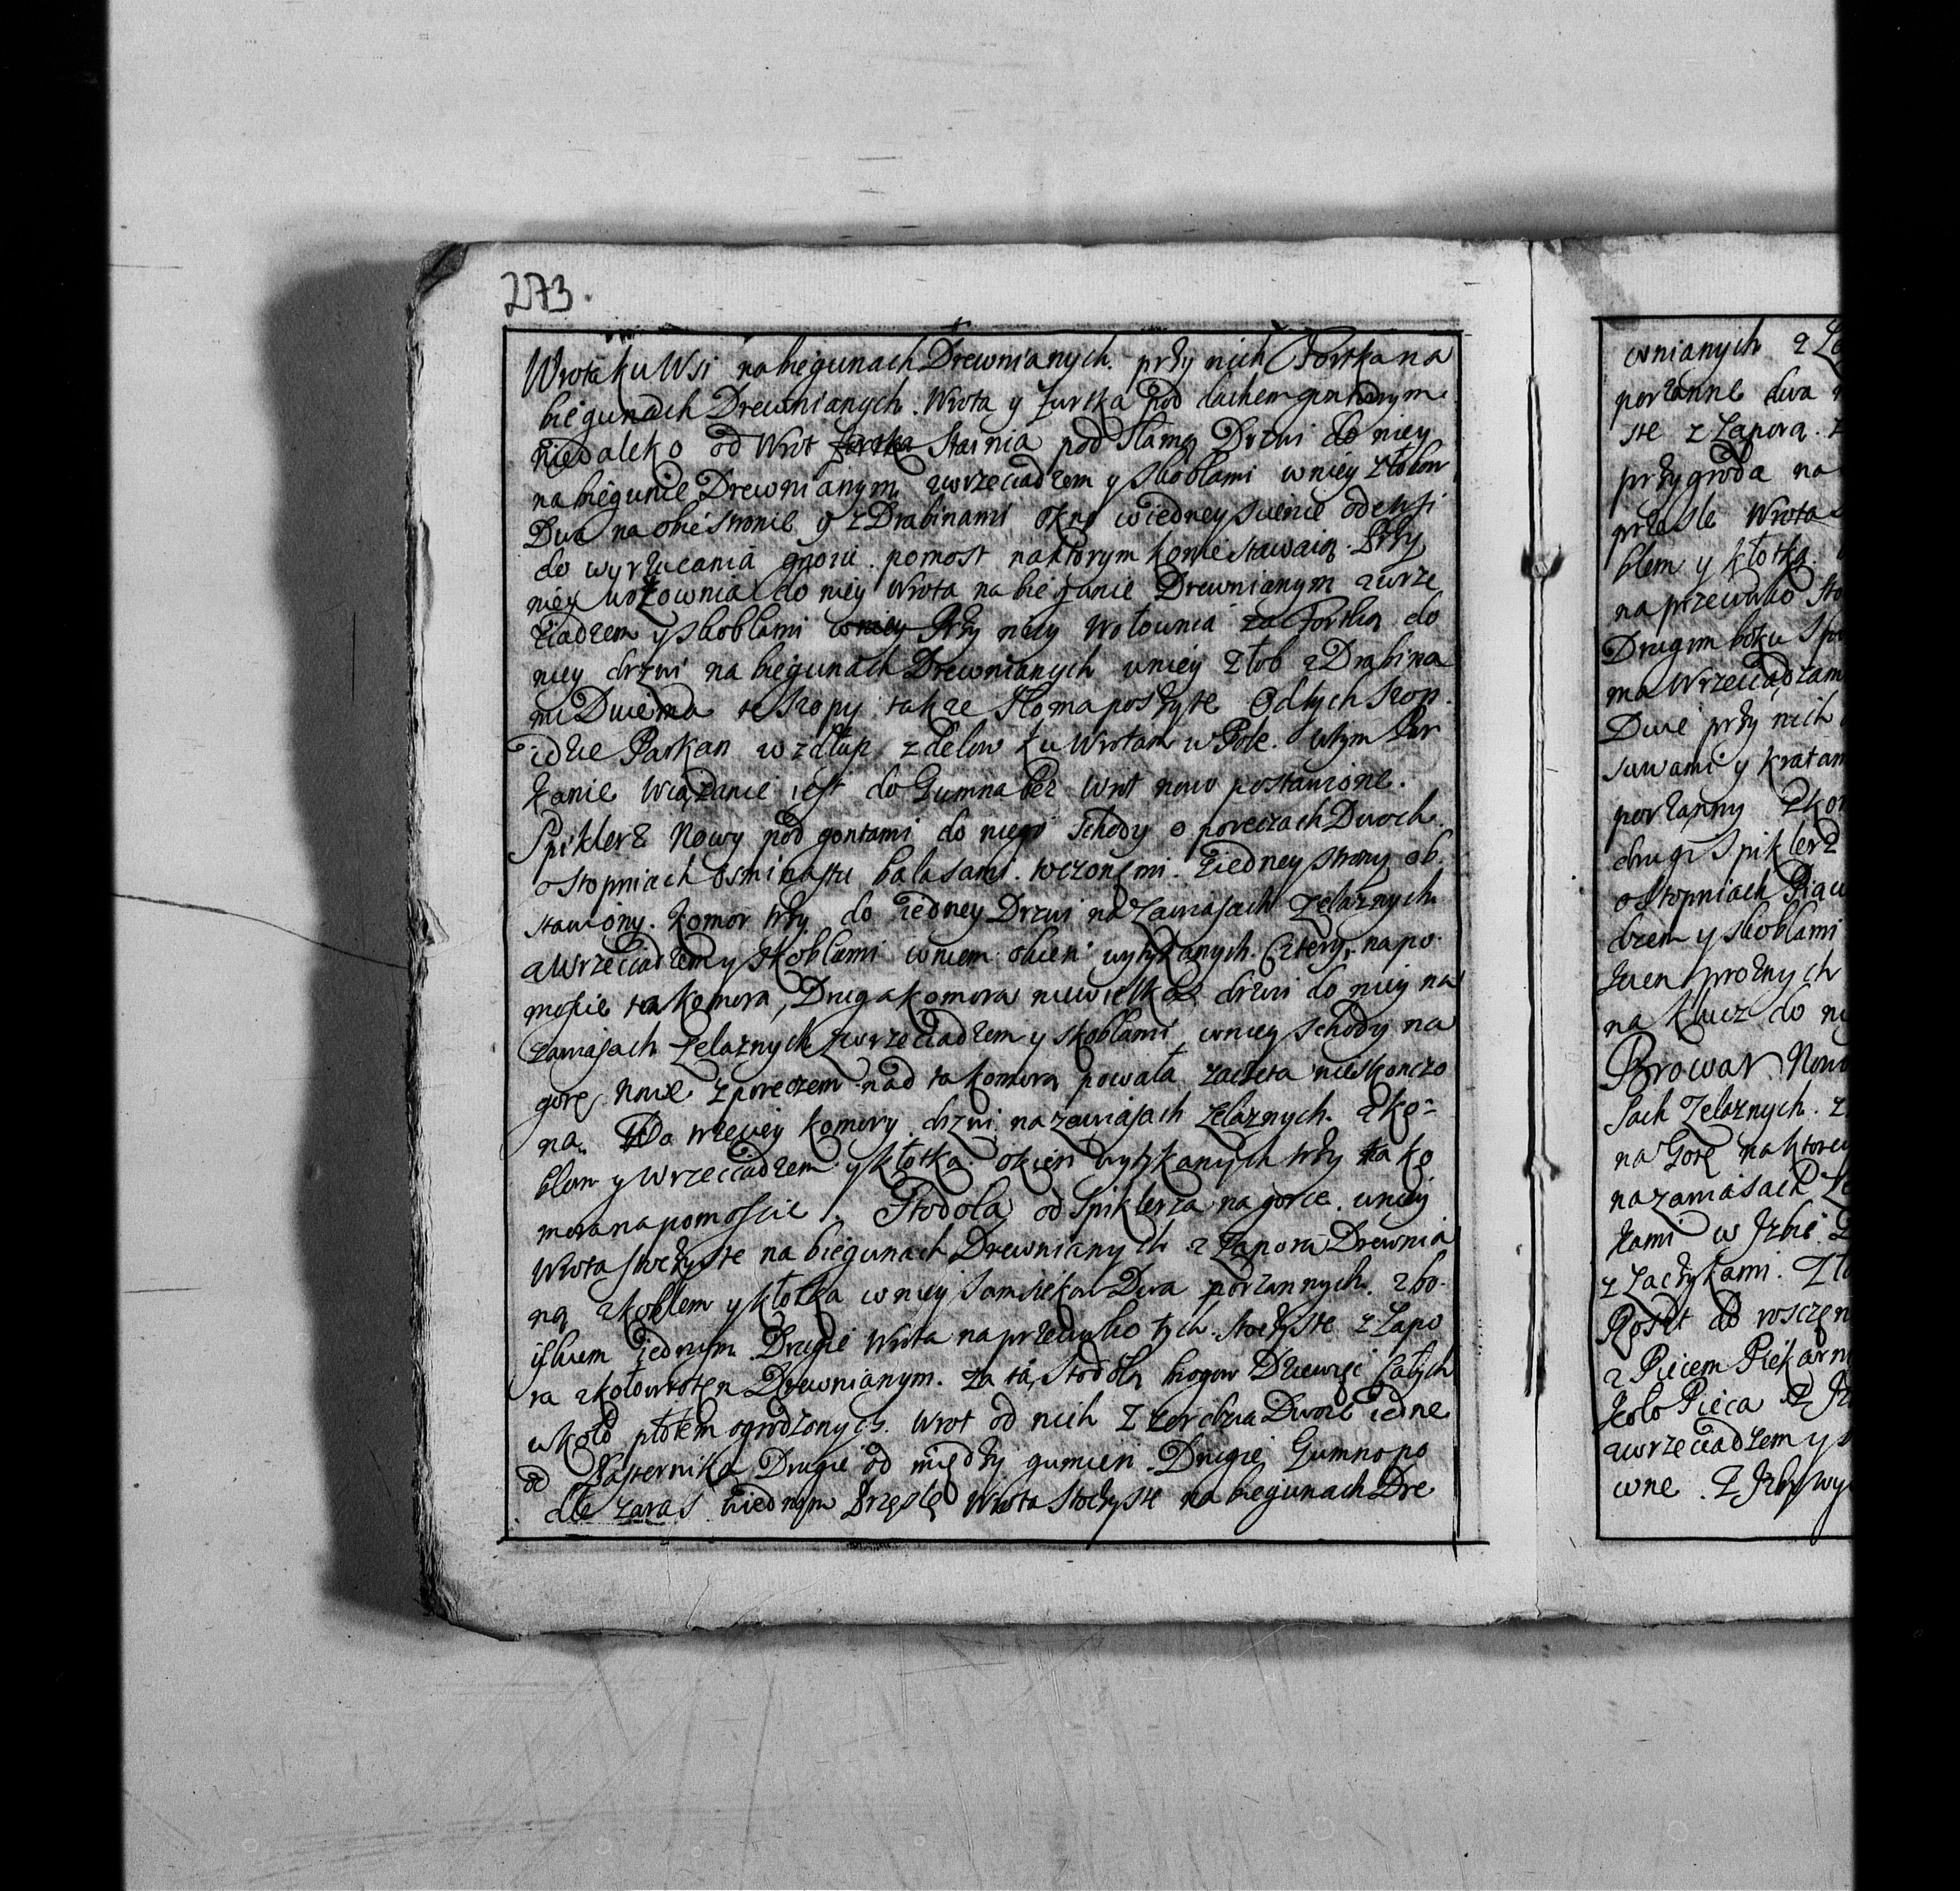 273.
Wrota ku Wsi na biegunach Drewnianych. przy nich Fortka na
biegunach Drewnianych. Wrota y furtka pod dachem gontowym.
niedaleko od Wrot fortka Stainia pod Słamą Drzwi do niey
na biegunie Drewnianym zwrzeciadzem y skoblami wniey złobow
Dwa na obie stronie y z Drabinami okno wiedney scienie odewsi
do wyrzucania gnoiu. pomost naktorym konie stawaią. Przy
niey wozownia do niey Wrota na biegunie Drewnianym zwrze
ciadzem y skoblami wniey Przy niey Wołownia za Fortką do
niey drzwi na biegunach Drewnianych wniey złob z Drabina
mi Dwiema te szopy takze słomą poszyte Od tych szop.
idzie Parkan wzdłuz z delow ku Wrotam w Pole. wtym Par
kanie Wiązanie iest do Gumna bez Wrot nowo postawione.
Spiklerz Nowy pod gontami do niego Schody o poreczach Dwoch.
o stopniach osminastu balasami toczonemi. ziedney strony ob.
stawiony. Komor trzy do iedney Drzwi na zawiasach Zelaznych
zwrzeciadzem y skoblami wniem okien wytykanych Cztery, na po.
moscie ta komora, Druga komora niewielka drzwi do niey na
zawiasach Zelaznych zwrzeciadzem y skoblami, wniey schody na
gorę nowe z poreczem nad ta komorą powała zaczeta nieskonczo
na. Do trzeciey komory drzwi na zawiasach Zelaznych. z sko-
blem y Wrzeciadzem y kłotką. okien wytykanych trzy ta ko
mora na pomoscie /. Stodoła od Spiklerza na gorce. wniey
Wrota stoczyste na biegunach Drewnianych z Zaporą Drewnia
ną zkoblem y kłotką wniey samsieka Dwa porzannych. z bo.
iskiem iednym Drugie Wrota naprzeciwko tych stoczyste z Zapo
ra z kołowrotem Drewnianym. Za tą Stodołą brogow Dziewięć Całych
wkoło płotem ogrodzonych. Wrot od nich z zerdzia Dwoie iedne
od Pasternika Drugie od między gumien. Drugie Gumno po
dle zaras wiednym Przęsle Wrota stoczyste na biegunach Dre
wnianych z Za
porzanne dwa
ste z Zaporą.
przygroda na
przęsle Wrota
blem y kłotką
naprzeciwko sto
Drugim boku
ma Wrzeciadzam
Dwie przy nich
suwami y kratam
porzanny
drugi Spiklerz
o stopniach
dzem y skoblami
proznych
na klucz do
Browar Nowo
sach Zelaznych.
na Gorę naktorey
na zawiasach
kami w Izbie
z Zaczykami.
do rosczen
z Piecem Piekarn
koło Pieca
zwrzeciadzem y s
wne. Z Izby wy